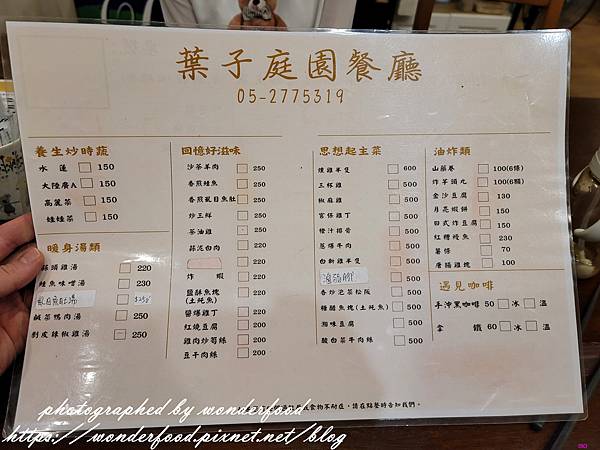 葉子庭園餐廳
05-2775319
養生炒時蔬
水 蓮 150
大陸廣A 150
高麗菜 150
娃娃菜 150
暖身湯類
蒜頭雞湯 220
鮭魚味噌湯 230
$250
鹹菜鴨肉湯 250
剝皮辣椒雞湯 250
回憶好滋味
沙茶羊肉 250
香煎鮭魚 250
香煎虱目魚肚 250
炒三鮮 250
茶油雞 250
蒜泥白肉 220
炸 蝦 220
鹽酥魚塊 200
(土魠魚)
醬爆雞丁 200
紅燒豆腐 200
雞肉炒筍絲 200
豆干肉絲 200
思想起主菜
燻雞半隻 600
三杯雞 250
椒麻雞 250
宮保雞丁 250
橙汁排骨 250
蔥爆牛肉 250
白斬雞半隻 500
香炒泡菜松阪 250
糖醋魚塊(土魠魚) 250
湘味豆腐 200
酸白菜牛肉絲 250
油炸類
山藥卷 100(6條)
炸芋頭丸 100(6顆)
金沙豆腐 130
月亮蝦餅 250
日式炸豆腐 150
紅糟鰻魚 230
薯條 70
唐揚雞塊 100
遇見咖啡
手沖黑咖啡 50 冰 溫
拿 鐵 60 冰 溫
食物不耐症，請在點餐時告知我們。
photographed by wonderfood
https://wonderfood.pixnet.net/blog